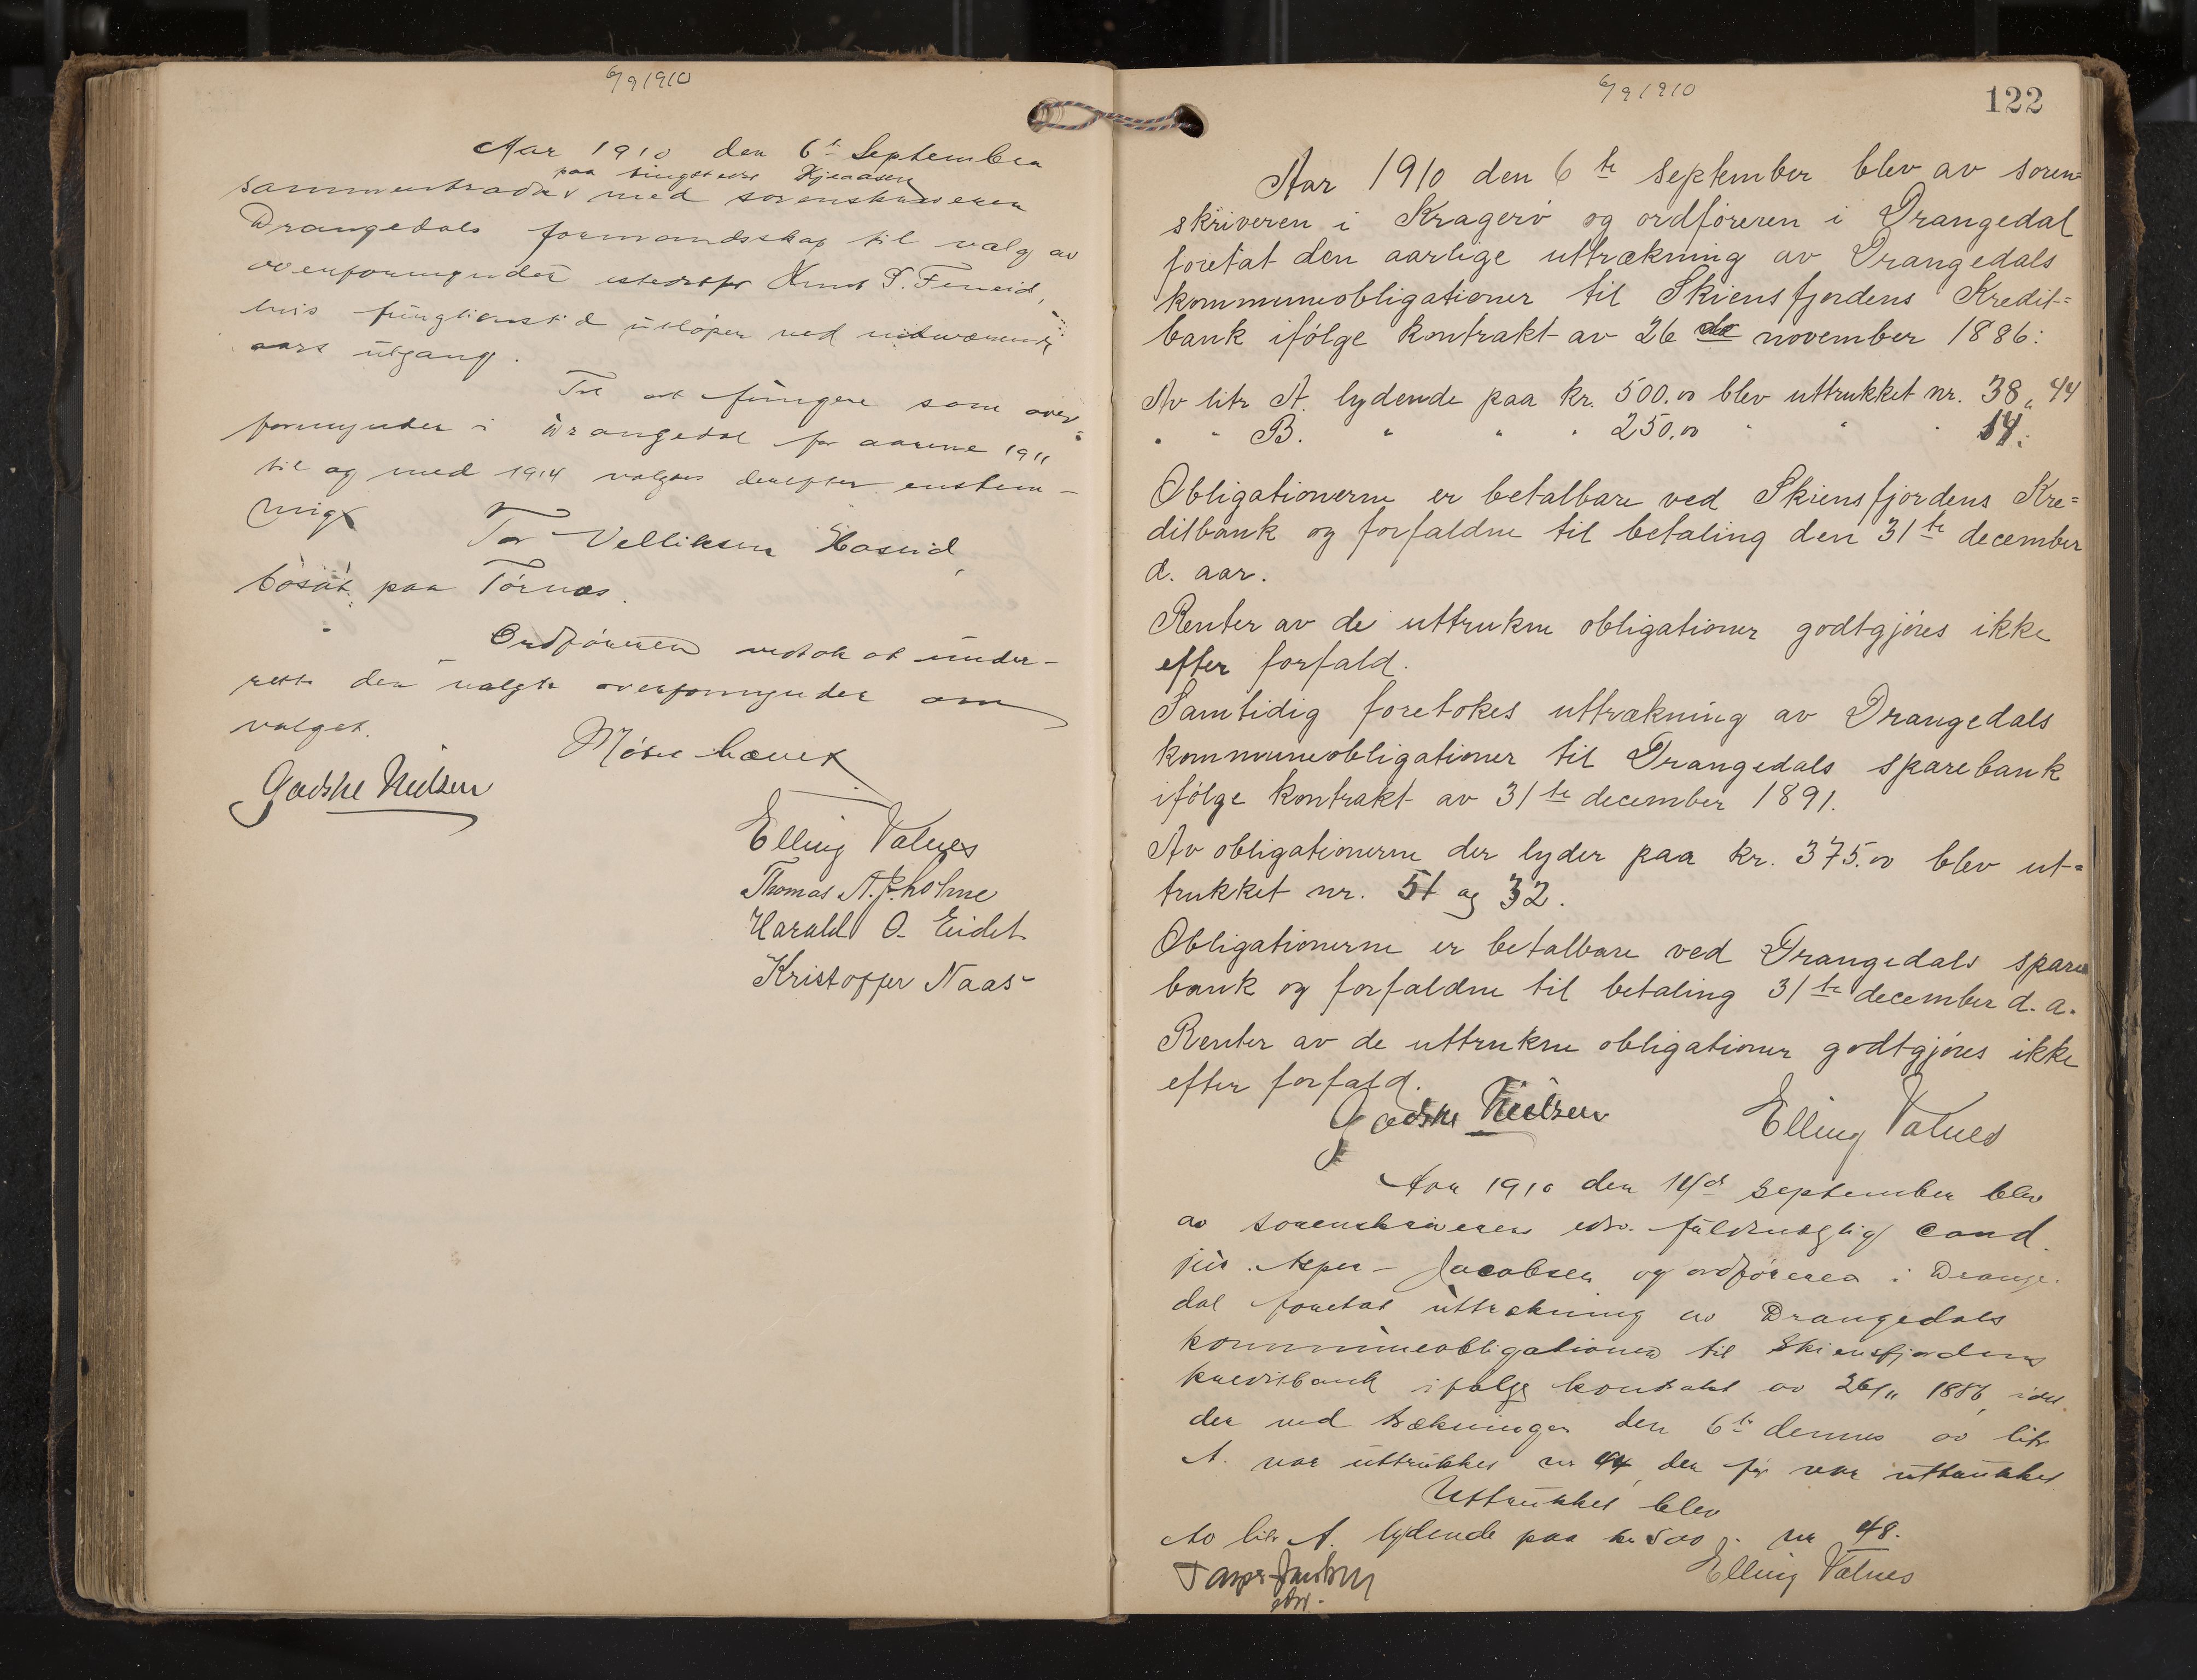 6/9 1910
Aar 1910 den 6te September
paa tingstedet Kjeaasen
sammentraadte med sorenskriveren
Drangedals formandsskap til valg av
overformynder istedetfor Knut P. Femeid,
hvis fungtionstid utløper ved indeværende
aars utgang.
Til at fungere som over-
formynder i Drangedal for aarene 1911
til og med 1914 valgtes derefter enstem-
mig
Tor Velliksen Haseid,
bosat paa Tørnæs.
Ordføreren vedtok at under-
rette den valgte overformynder om
valget.
Møtet hævet
Gadske Nielsen
Elling Valnes
Thomas A. holme
Harald O. Eidet
Kristoffer Naas
6/9 1910
122
Aar 1910 den 6te september blev av soren=
skriveren i Kragerö og ordföreren i Drangedal
foretat den aarlige uttrækning av Drangedals
kommuneobligationer til Skiensfjordens Kredit=
bank ifölge kontrakt av 26de november 1886:
Av litr A. lydende paa kr. 500.00 blev uttrukket nr. 38, 44
" " B. " " " 250.00 " " " 14.
Obligationerne er betalbare ved Skiensfjordens Kre=
ditbank og forfaldne til betaling den 31te december
d. aar.
Renter av de uttrukne obligationer godtgjöres ikke
efter forfald.
Samtidig foretokes uttrækning av Drangedals
kommuneobligationer til Drangedals sparebank
ifölge kontrakt av 31te december 1891.
Av obligationerne der lyder paa kr. 375.00 blev ut=
trukket nr. 51 og 32.
Obligationerne er betalbare ved Drangedals spare
bank og forfaldne til betaling 31te december d. a.
Renter av de uttrukne obligationer godtgjöres ikke
efter forfald.
Gadske Nielsen Elling Valnes
Aar 1910 den september blev
av sorenskriveren edsv. fuldmægtig cand.
jur. Jacobsen og ordføreren i Drange-
dal foretat uttrækning av Drangedals
kommuneobligationer til Skiensfjordens
kreditbank ifølge kontrakt av 26/11 1886, idet
der ved trækningen den 6te dennes av litr
A. var uttrukket nr 44, der før var uttrukket
Uttrukket blev
Av litr A. lydende paa kr 500 nr 48.
Elling Valnes
edsv.